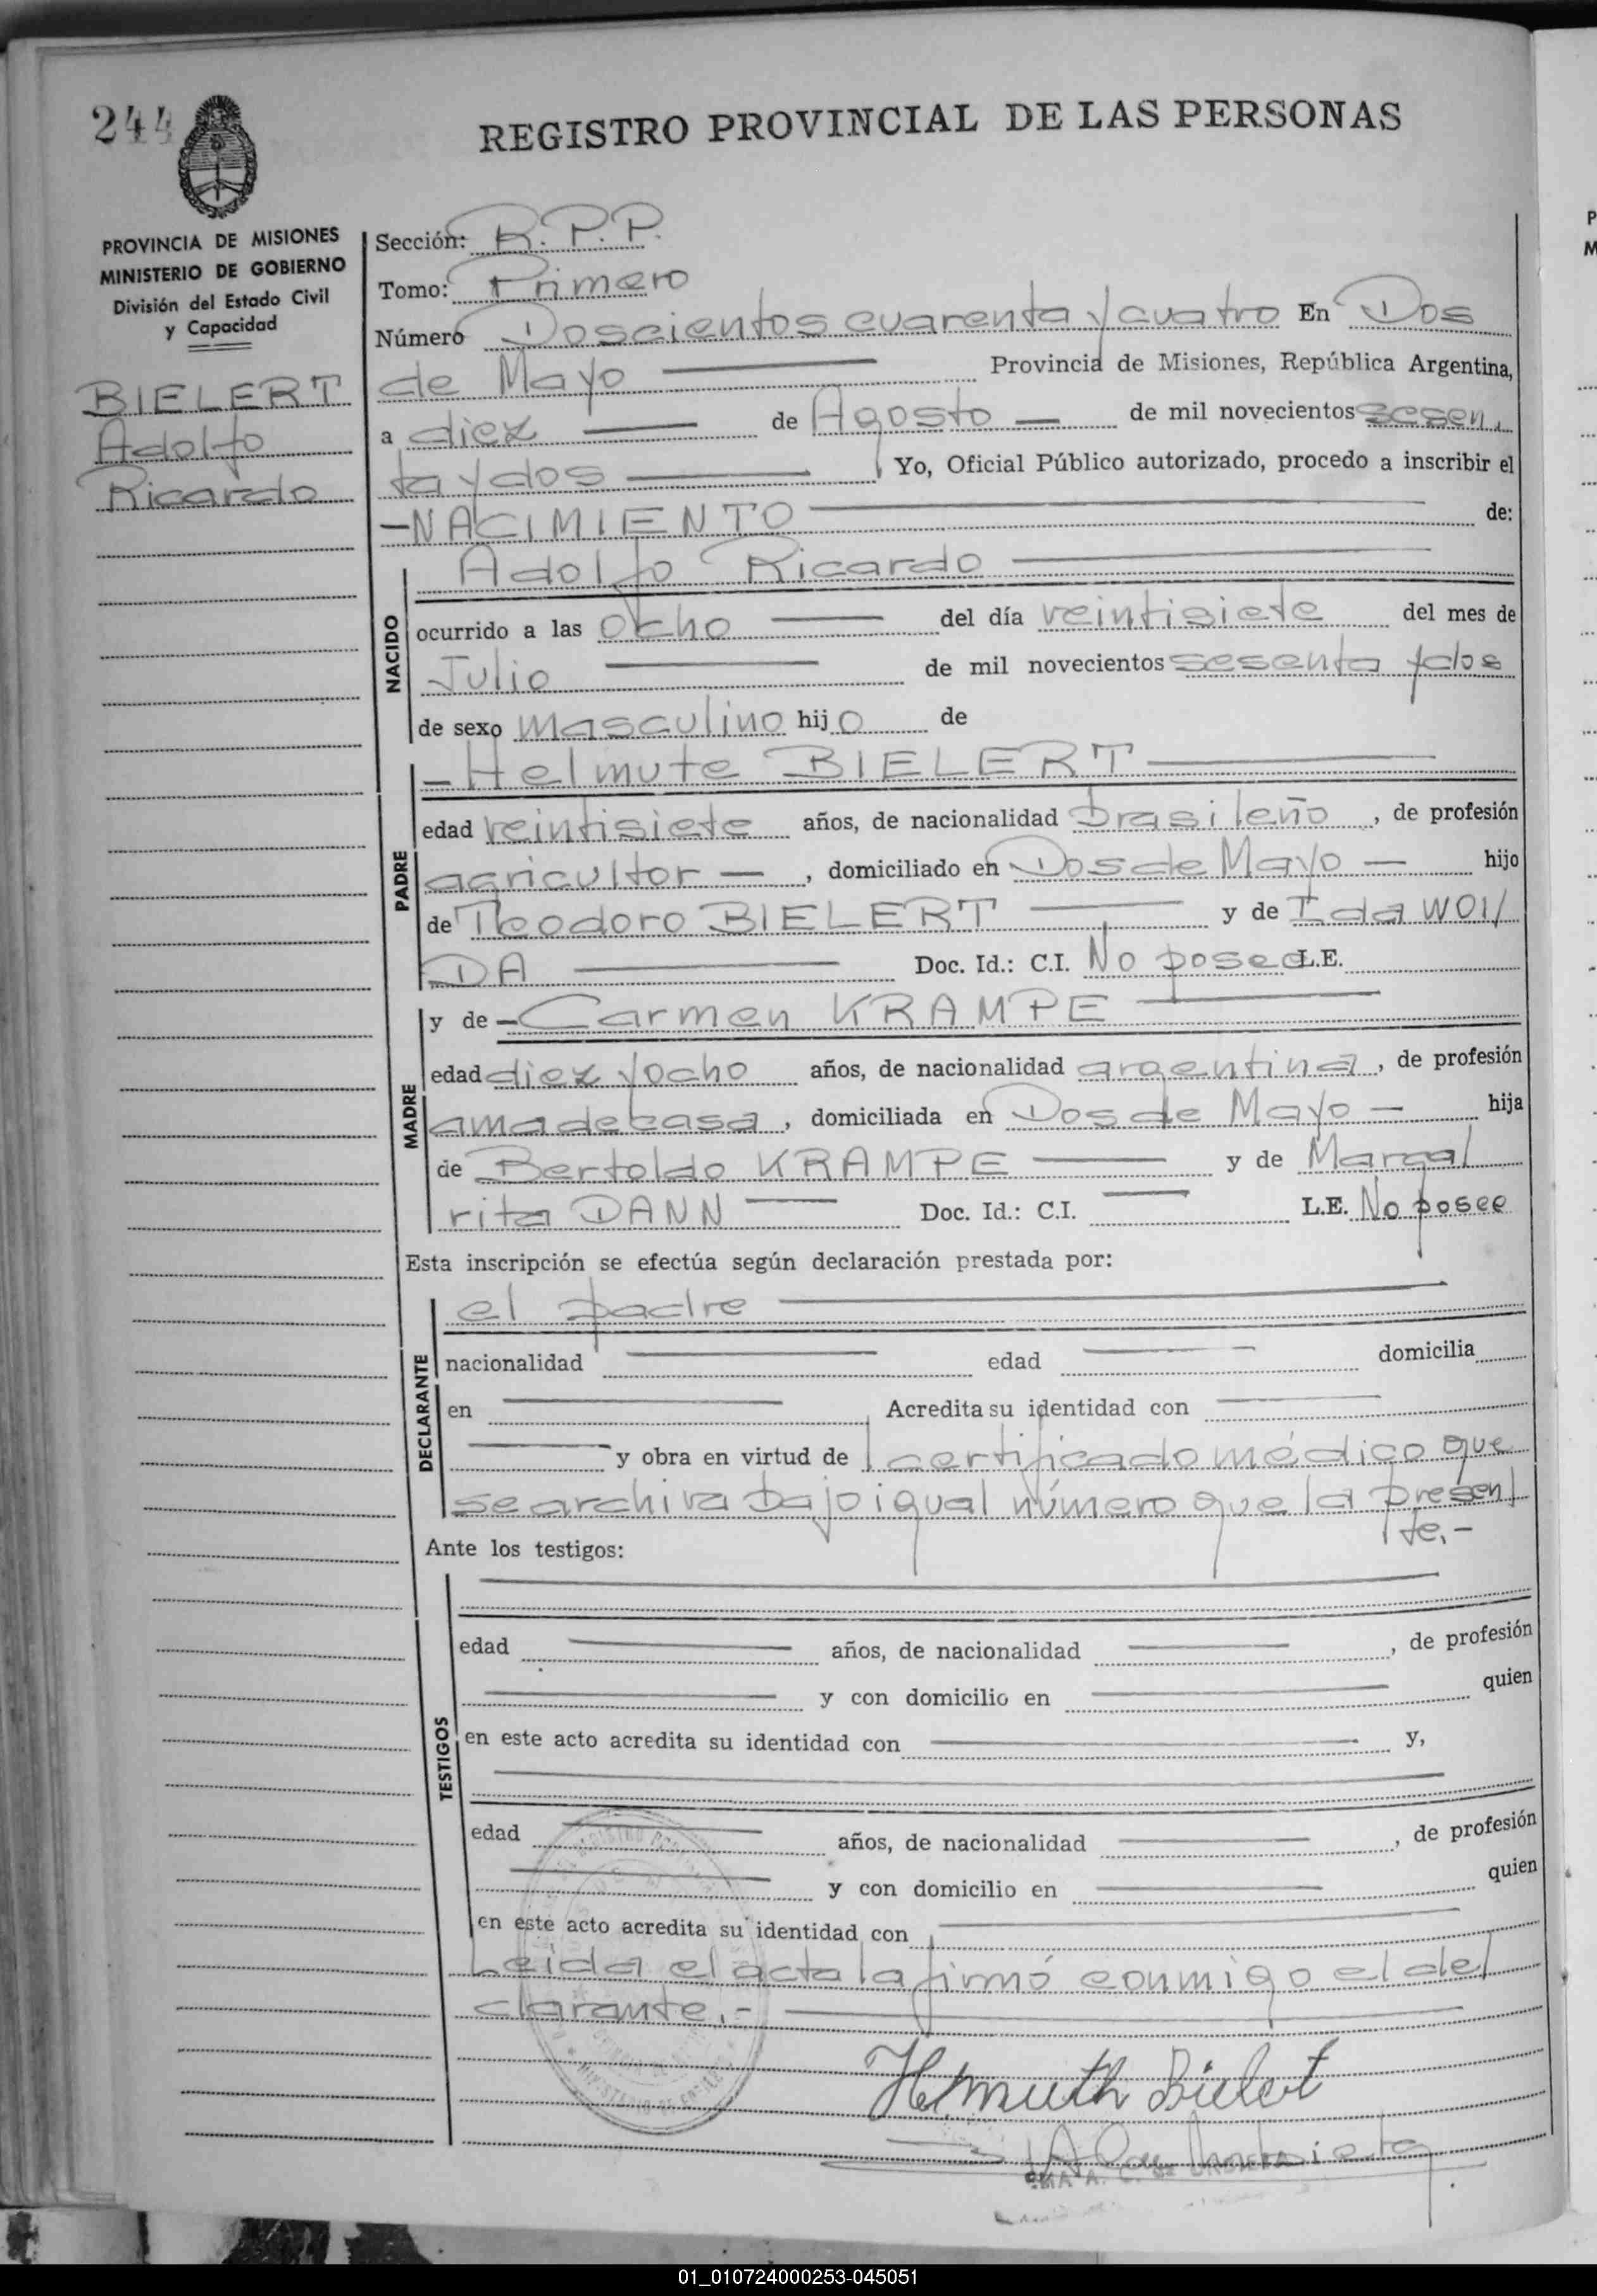 244
REGISTRO PROVINCIAL DE LAS PERSONAS
PROVINCIA DE MISIONES
MINISTERIO DE GOBIERNO
División del Estado Civil
y Capacidad
BIELERT
Adolfo
Ricardo
Sección: R.P.P.
Tomo: Primero
Número Doscientos cuarenta y cuatro En Dos
de Mayo — Provincia de Misiones, República Argentina,
a diez — de Agosto — de mil novecientos sesen
ta y dos — Yo, Oficial Público autorizado, procedo a inscribir el
—NACIMIENTO — de:
NACIDO
Adolfo Ricardo —
ocurrido a las ocho — del día veintisiete del mes de
Julio — de mil novecientos sesenta y dos
de sexo masculino hijo de
PADRE
—Helmute BIELERT —
edad veintisiete años, de nacionalidad brasileño, de profesión
agricultor —, domiciliado en Dos de Mayo — hijo
de Teodoro BIELERT — y de Ida WOI/
DA — Doc. Id.: C.I. No posee L.E.
MADRE
y de — Carmen KRAMPE —
edad diez y ocho años, de nacionalidad argentina, de profesión
ama de casa, domiciliada en Dos de Mayo — hija
de Bertoldo KRAMPE — y de Marga/
rita DANN — Doc. Id.: C.I. — L.E. No posee
Esta inscripción se efectúa según declaración prestada por:
DECLARANTE
el padre —
nacionalidad — edad — domicilia
en — Acredita su identidad con —
— y obra en virtud de certificado médico que
se archiva bajo igual número que la presen/
te.-
Ante los testigos:
TESTIGOS
edad — años, de nacionalidad —, de profesión
— y con domicilio en — quien
en este acto acredita su identidad con — y,
edad — años, de nacionalidad —, de profesión
— y con domicilio en — quien
en este acto acredita su identidad con —
Leida el acta la firmó conmigo el de/
clarante.- —
Helmuth Bielert
01_010724000253-045051